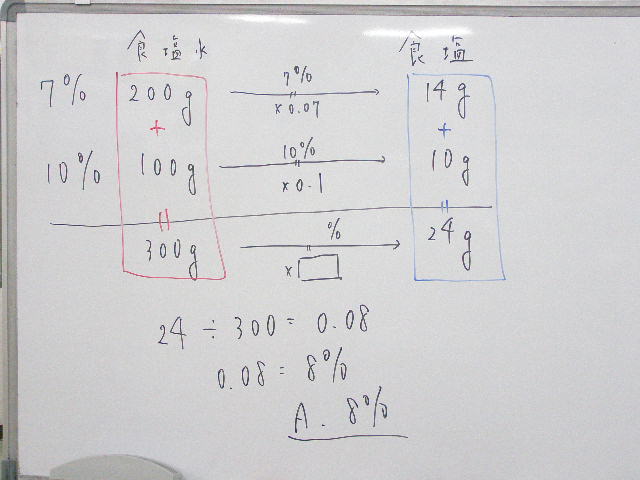 食塩水 食塩
7% 200g 7% 14g
× 0.07
+ +
10% 100g 10% 10g
× 0.1
300g % 24g
×
24 ÷ 300 = 0.08
0.08 = 8%
A. 8%